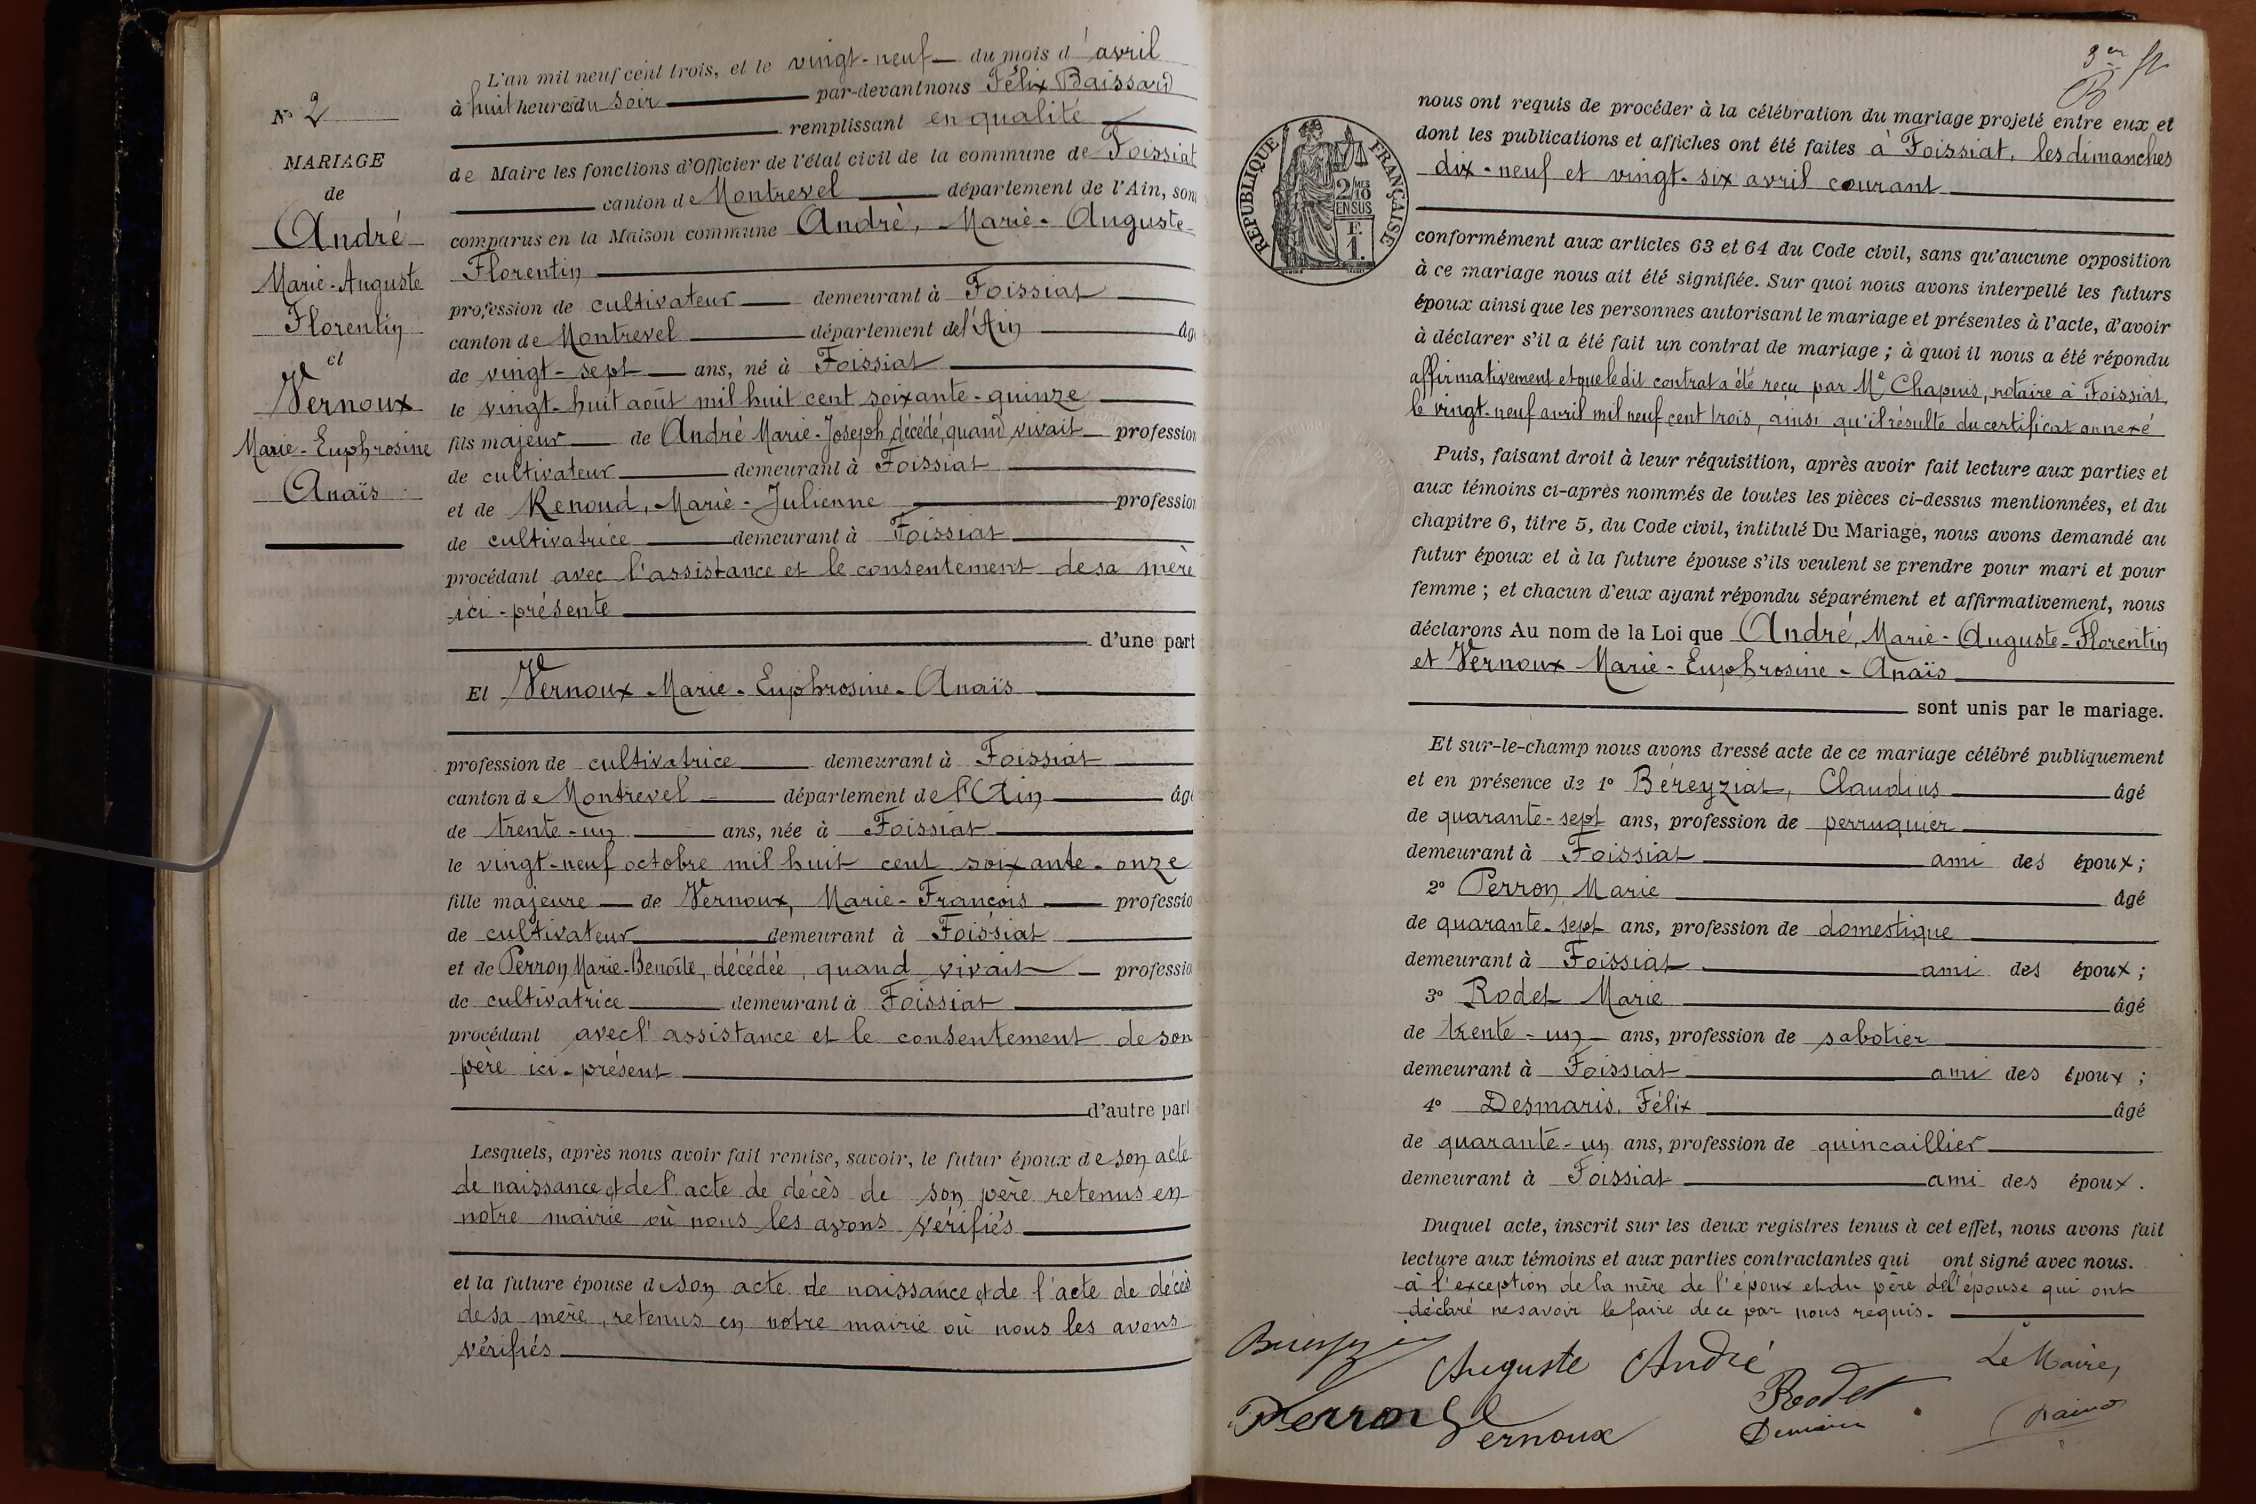 L'an mil neuf cent trois, et le vingt-neuf du mois d'avril
à huit heures du soir par-devant nous Félix Baissard
remplissant en qualité
de Maire les fonctions d'Officier de l'état civil de la commune de Foissiat
canton de Montrevel département de l'Ain, son
comparus en la Maison commune André, Marie-Auguste-
Florentin
profession de cultivateur demeurant à Foissiat
canton de Montrevel département de l'Ain âg
de vingt-sept ans, né à Foissiat
le vingt-huit août mil huit cent soixante-quinze
fils majeur de André Marie-Joseph, décédé, quand vivait profession
de cultivateur demeurant à Foissiat
et de Renoud, Marie-Julienne profession
de cultivatrice demeurant à Foissiat
procédant avec l'assistance et le consentement de sa mère
ici-présente
d'une part
Et Vernoux Marie-Euphrosine-Anaïs
profession de cultivatrice demeurant à Foissiat
canton de Montrevel département de l'Ain âgé
de trente-un ans, née à Foissiat
le vingt-neuf octobre mil huit cent soixante-onze
fille majeure de Vernoux, Marie-François professio
de cultivateur demeurant à Foissiat
et de Perron Marie-Benoîte, décédée, quand vivait professio
de cultivatrice demeurant à Foissiat
procédant avec l'assistance et le consentement de son
père ici-présent
d'autre part
Lesquels, après nous avoir fait remise, savoir, le futur époux de son acte
de naissance et de l'acte de décès de son père retenus en
notre mairie où nous les avons vérifiés
et la future épouse de son acte de naissance et de l'acte de décès
de sa mère, retenus en notre mairie où nous les avons
vérifiés
N° 2
MARIAGE
de
André
Marie-Auguste
Florentin
et
Vernoux
Marie-Euphrosine
Anaïs
3en
RÉPUBLIQUE FRANÇAISE
2/10MES
EN SUS
F.
1.
nous ont requis de procéder à la célébration du mariage projeté entre eux et
dont les publications et affiches ont été faites à Foissiat, les dimanches
dix-neuf et vingt-six avril courant
conformément aux articles 63 et 64 du Code civil, sans qu'aucune opposition
à ce mariage nous ait été signifiée. Sur quoi nous avons interpellé les futurs
époux ainsi que les personnes autorisant le mariage et présentes à l'acte, d'avoir
à déclarer s'il a été fait un contrat de mariage ; à quoi il nous a été répondu
affirmativement et que le dit contrat a été reçu par Me Chapuis, notaire à Foissiat,
le vingt-neuf avril mil neuf cent trois, ainsi qu'il résulte du certificat annexé
Puis, faisant droit à leur réquisition, après avoir fait lecture aux parties et
aux témoins ci-après nommés de toutes les pièces ci-dessus mentionnées, et du
chapitre 6, titre 5, du Code civil, intitulé Du Mariage, nous avons demandé au
futur époux et à la future épouse s'ils veulent se prendre pour mari et pour
femme ; et chacun d'eux ayant répondu séparément et affirmativement, nous
déclarons Au nom de la Loi que André, Marie-Auguste-Florentin
et Vernoux Marie-Euphrosine-Anaïs
sont unis par le mariage.
Et sur-le-champ nous avons dressé acte de ce mariage célébré publiquement
et en présence de 1° Béreyziat, Claudius âgé
de quarante-sept ans, profession de perruquier
demeurant à Foissiat ami des époux ;
2° Perron Marie âgé
de quarante-sept ans, profession de domestique
demeurant à Foissiat ami des époux ;
3° Rodet Marie âgé
de trente-un ans, profession de sabotier
demeurant à Foissiat ami des époux ;
4° Desmaris, Félix âgé
de quarante-un ans, profession de quincaillier
demeurant à Foissiat ami des époux.
Duquel acte, inscrit sur les deux registres tenus à cet effet, nous avons fait
lecture aux témoins et aux parties contractantes qui ont signé avec nous.
à l'exception de la mère de l'époux et du père de l'épouse qui ont
déclaré ne savoir le faire de ce par nous requis.
Auguste André
Le Maire,
Rodet
Perron
Vernoux